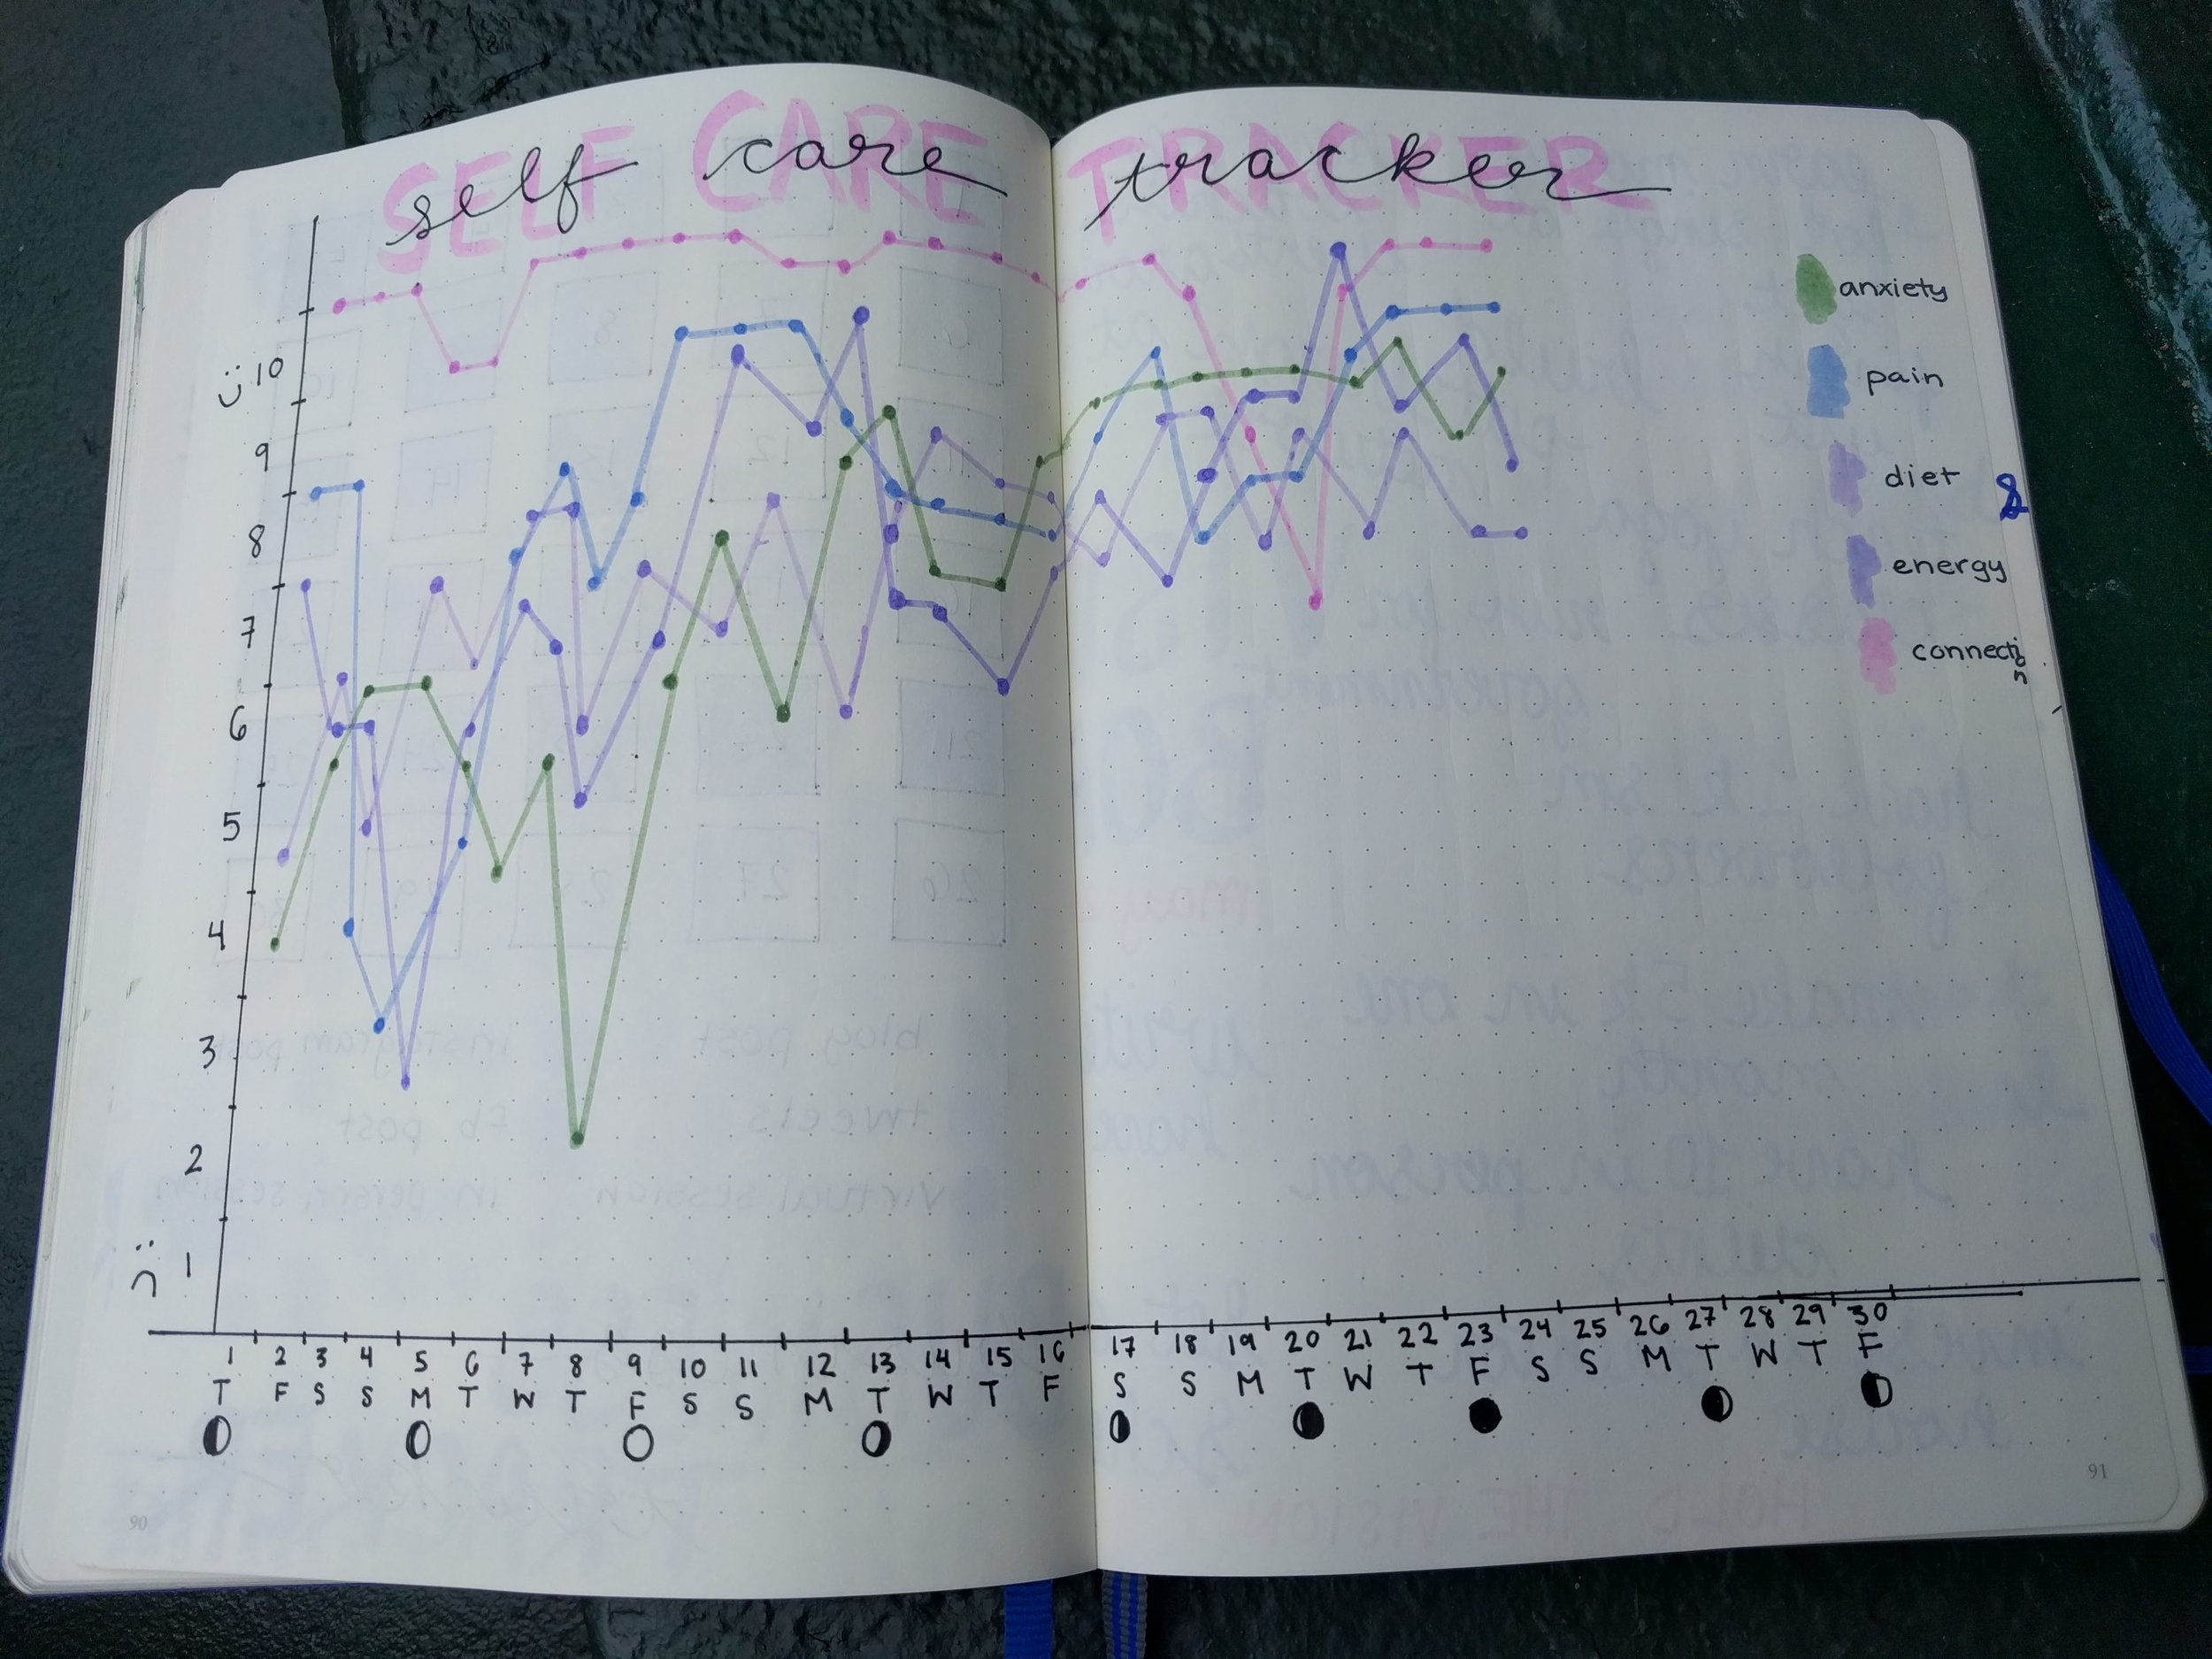 SELF CARE TRACKER
self care tracker
anxiety
pain
diet
energy
connection
10
9
8
7
6
5
4
3
2
1
1 2 3 4 5 6 7 8 9 10 11 12 13 14 15 16 17 18 19 20 21 22 23 24 25 26 27 28 29 30
T F S S M T W T F S S M T W T F S S M T W T F S S M T W T F
90
91